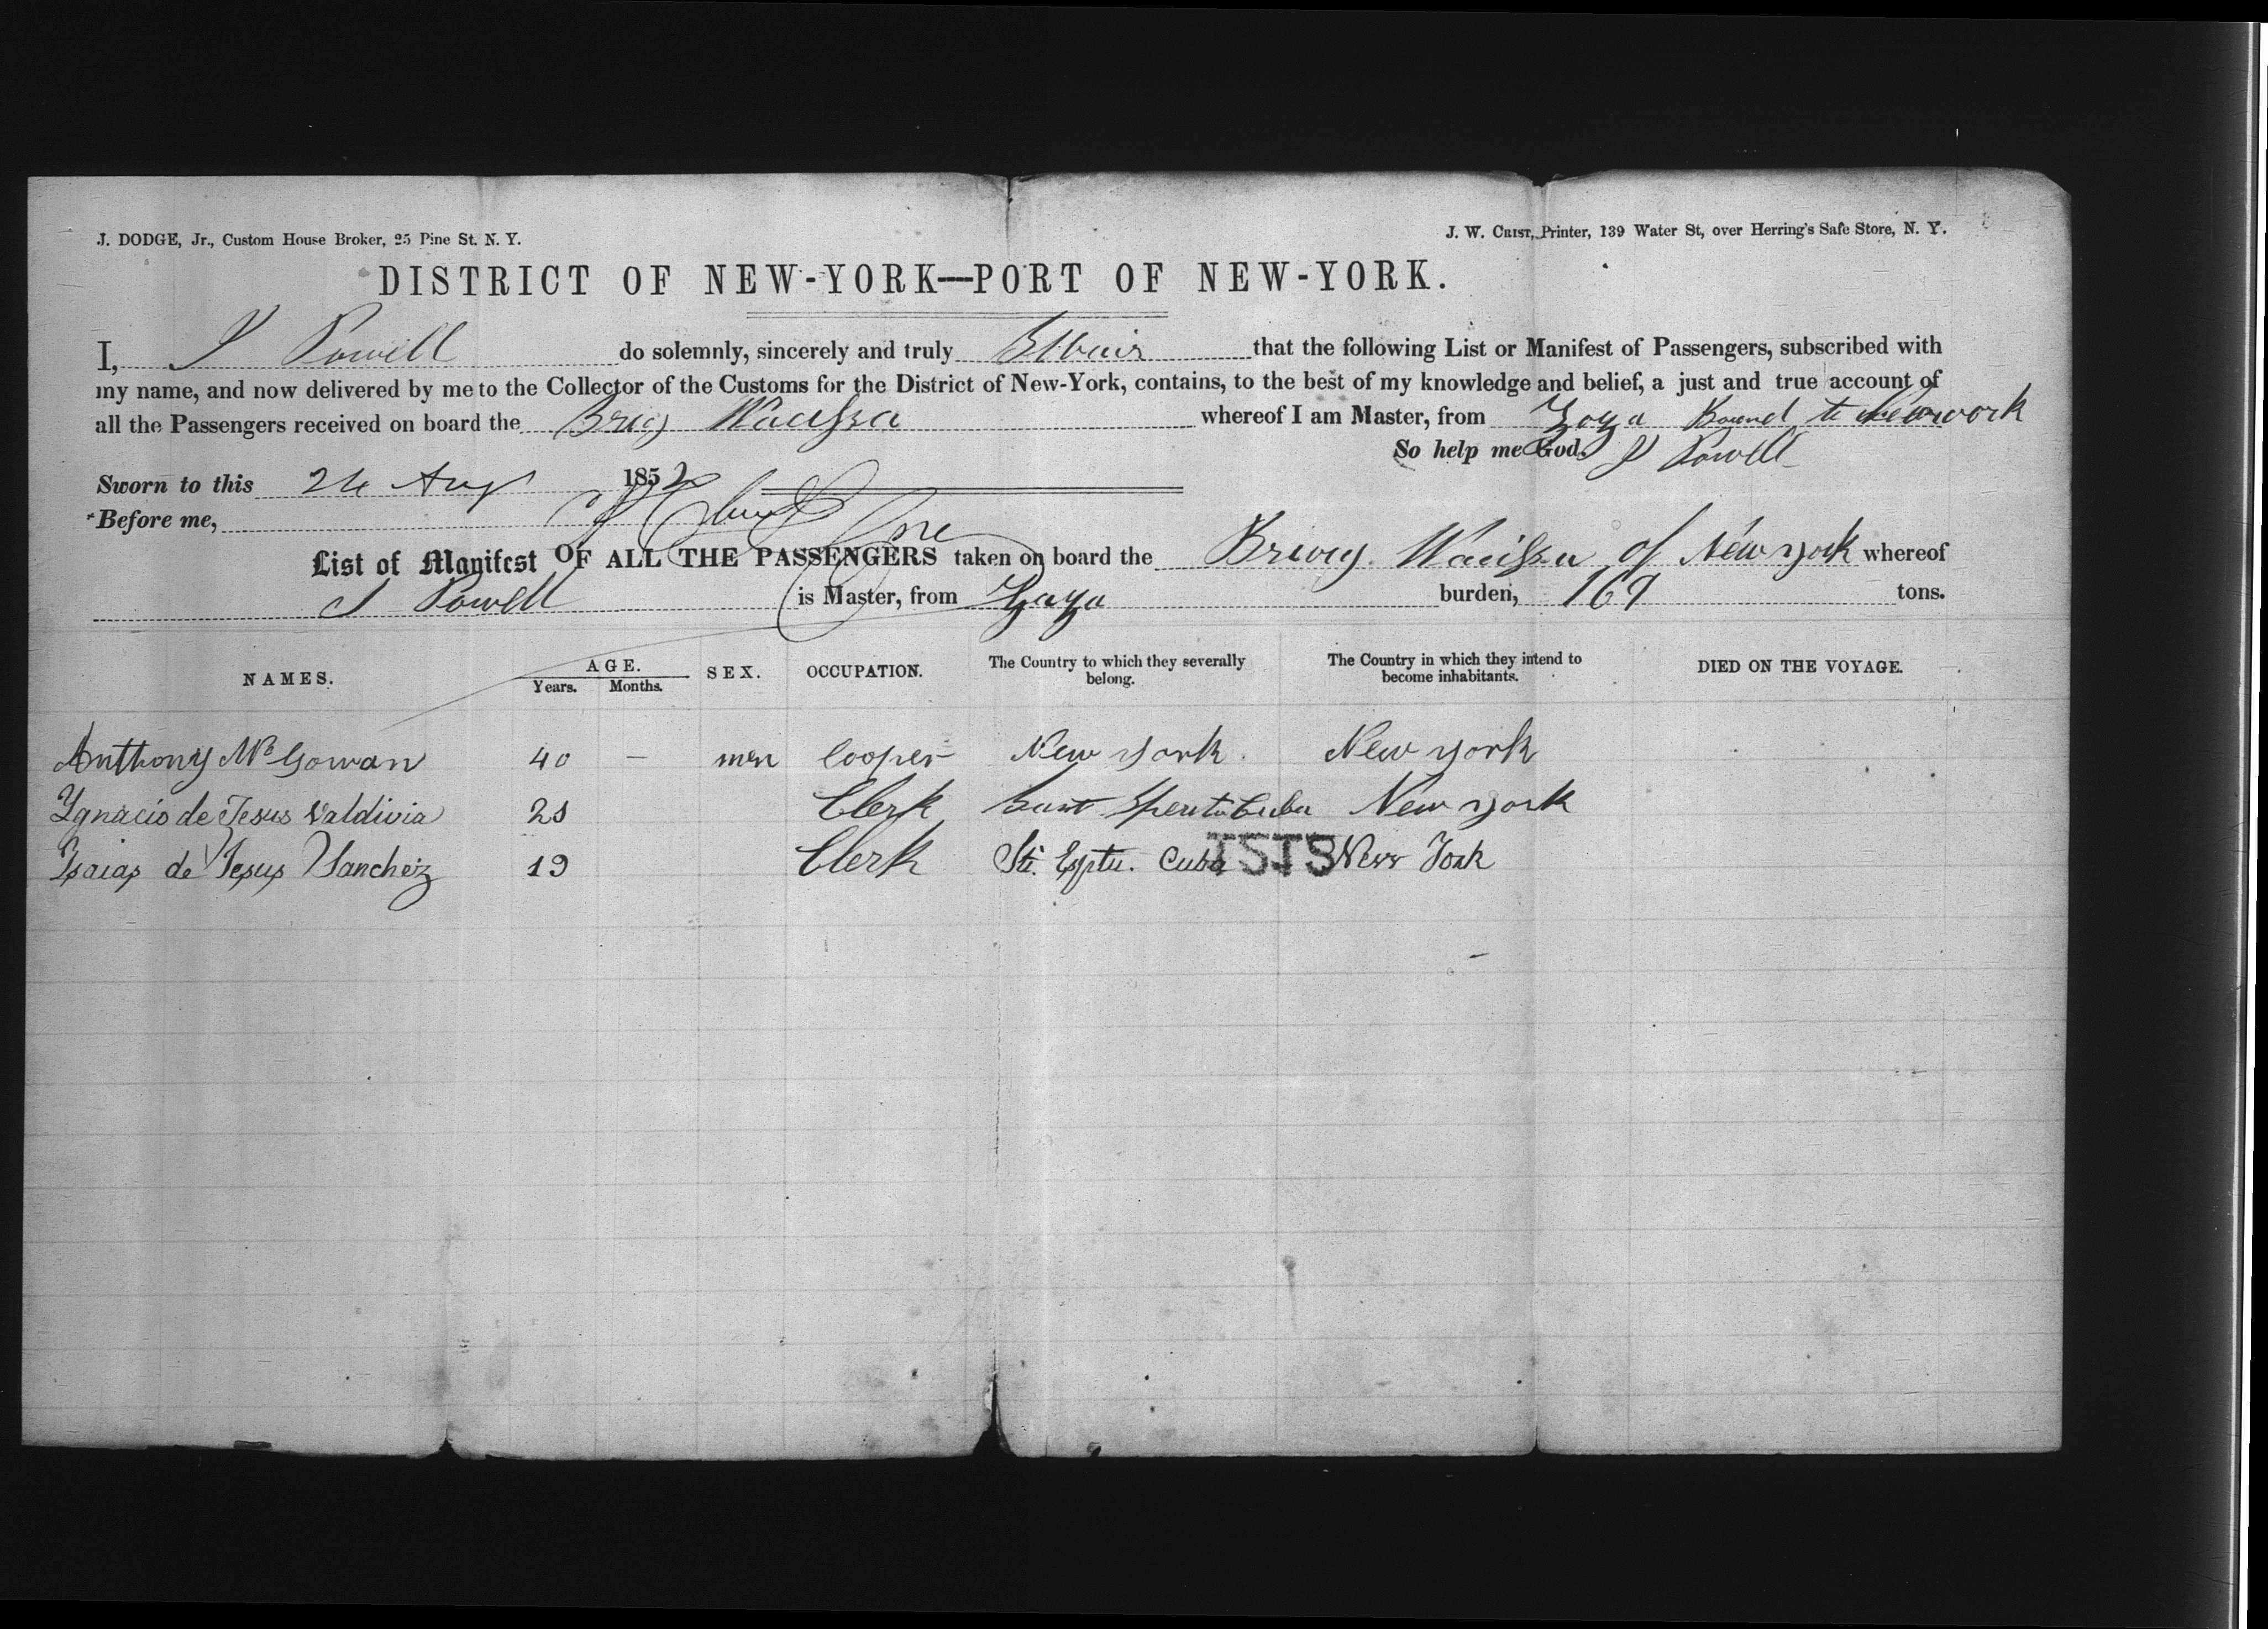 J. DODGE, Jr., Custom House Broker, 25 Pine St. N. Y.
J. W. CRIST, Printer, 139 Water St, over Herring's Safe Store, N. Y.
DISTRICT OF NEW-YORK—PORT OF NEW-YORK.
I, J Powell do solemnly, sincerely and truly that the following List or Manifest of Passengers, subscribed with
my name, and now delivered by me to the Collector of the Customs for the District of New-York, contains, to the best of my knowledge and belief, a just and true account of
all the Passengers received on board the Brig whereof I am Master, from Zaza Bound to
So help me God. J Powell
Sworn to this 24 Aug 1852
Before me,
List of Manifest OF ALL THE PASSENGERS taken on board the of New york whereof
J Powell is Master, from Zaza burden, 169 tons.
NAMES. AGE. SEX. OCCUPATION. The Country to which they severally belong. The Country in which they intend to become inhabitants. DIED ON THE VOYAGE.
Years. Months.
Anthony Mc Gowan 40 — men Cooper New york New york
Ygnacio de Jesus Valdivia Clerk Cuba New york
Isaias de Jesus Sanchez 19 Clerk Cuba New York
1513